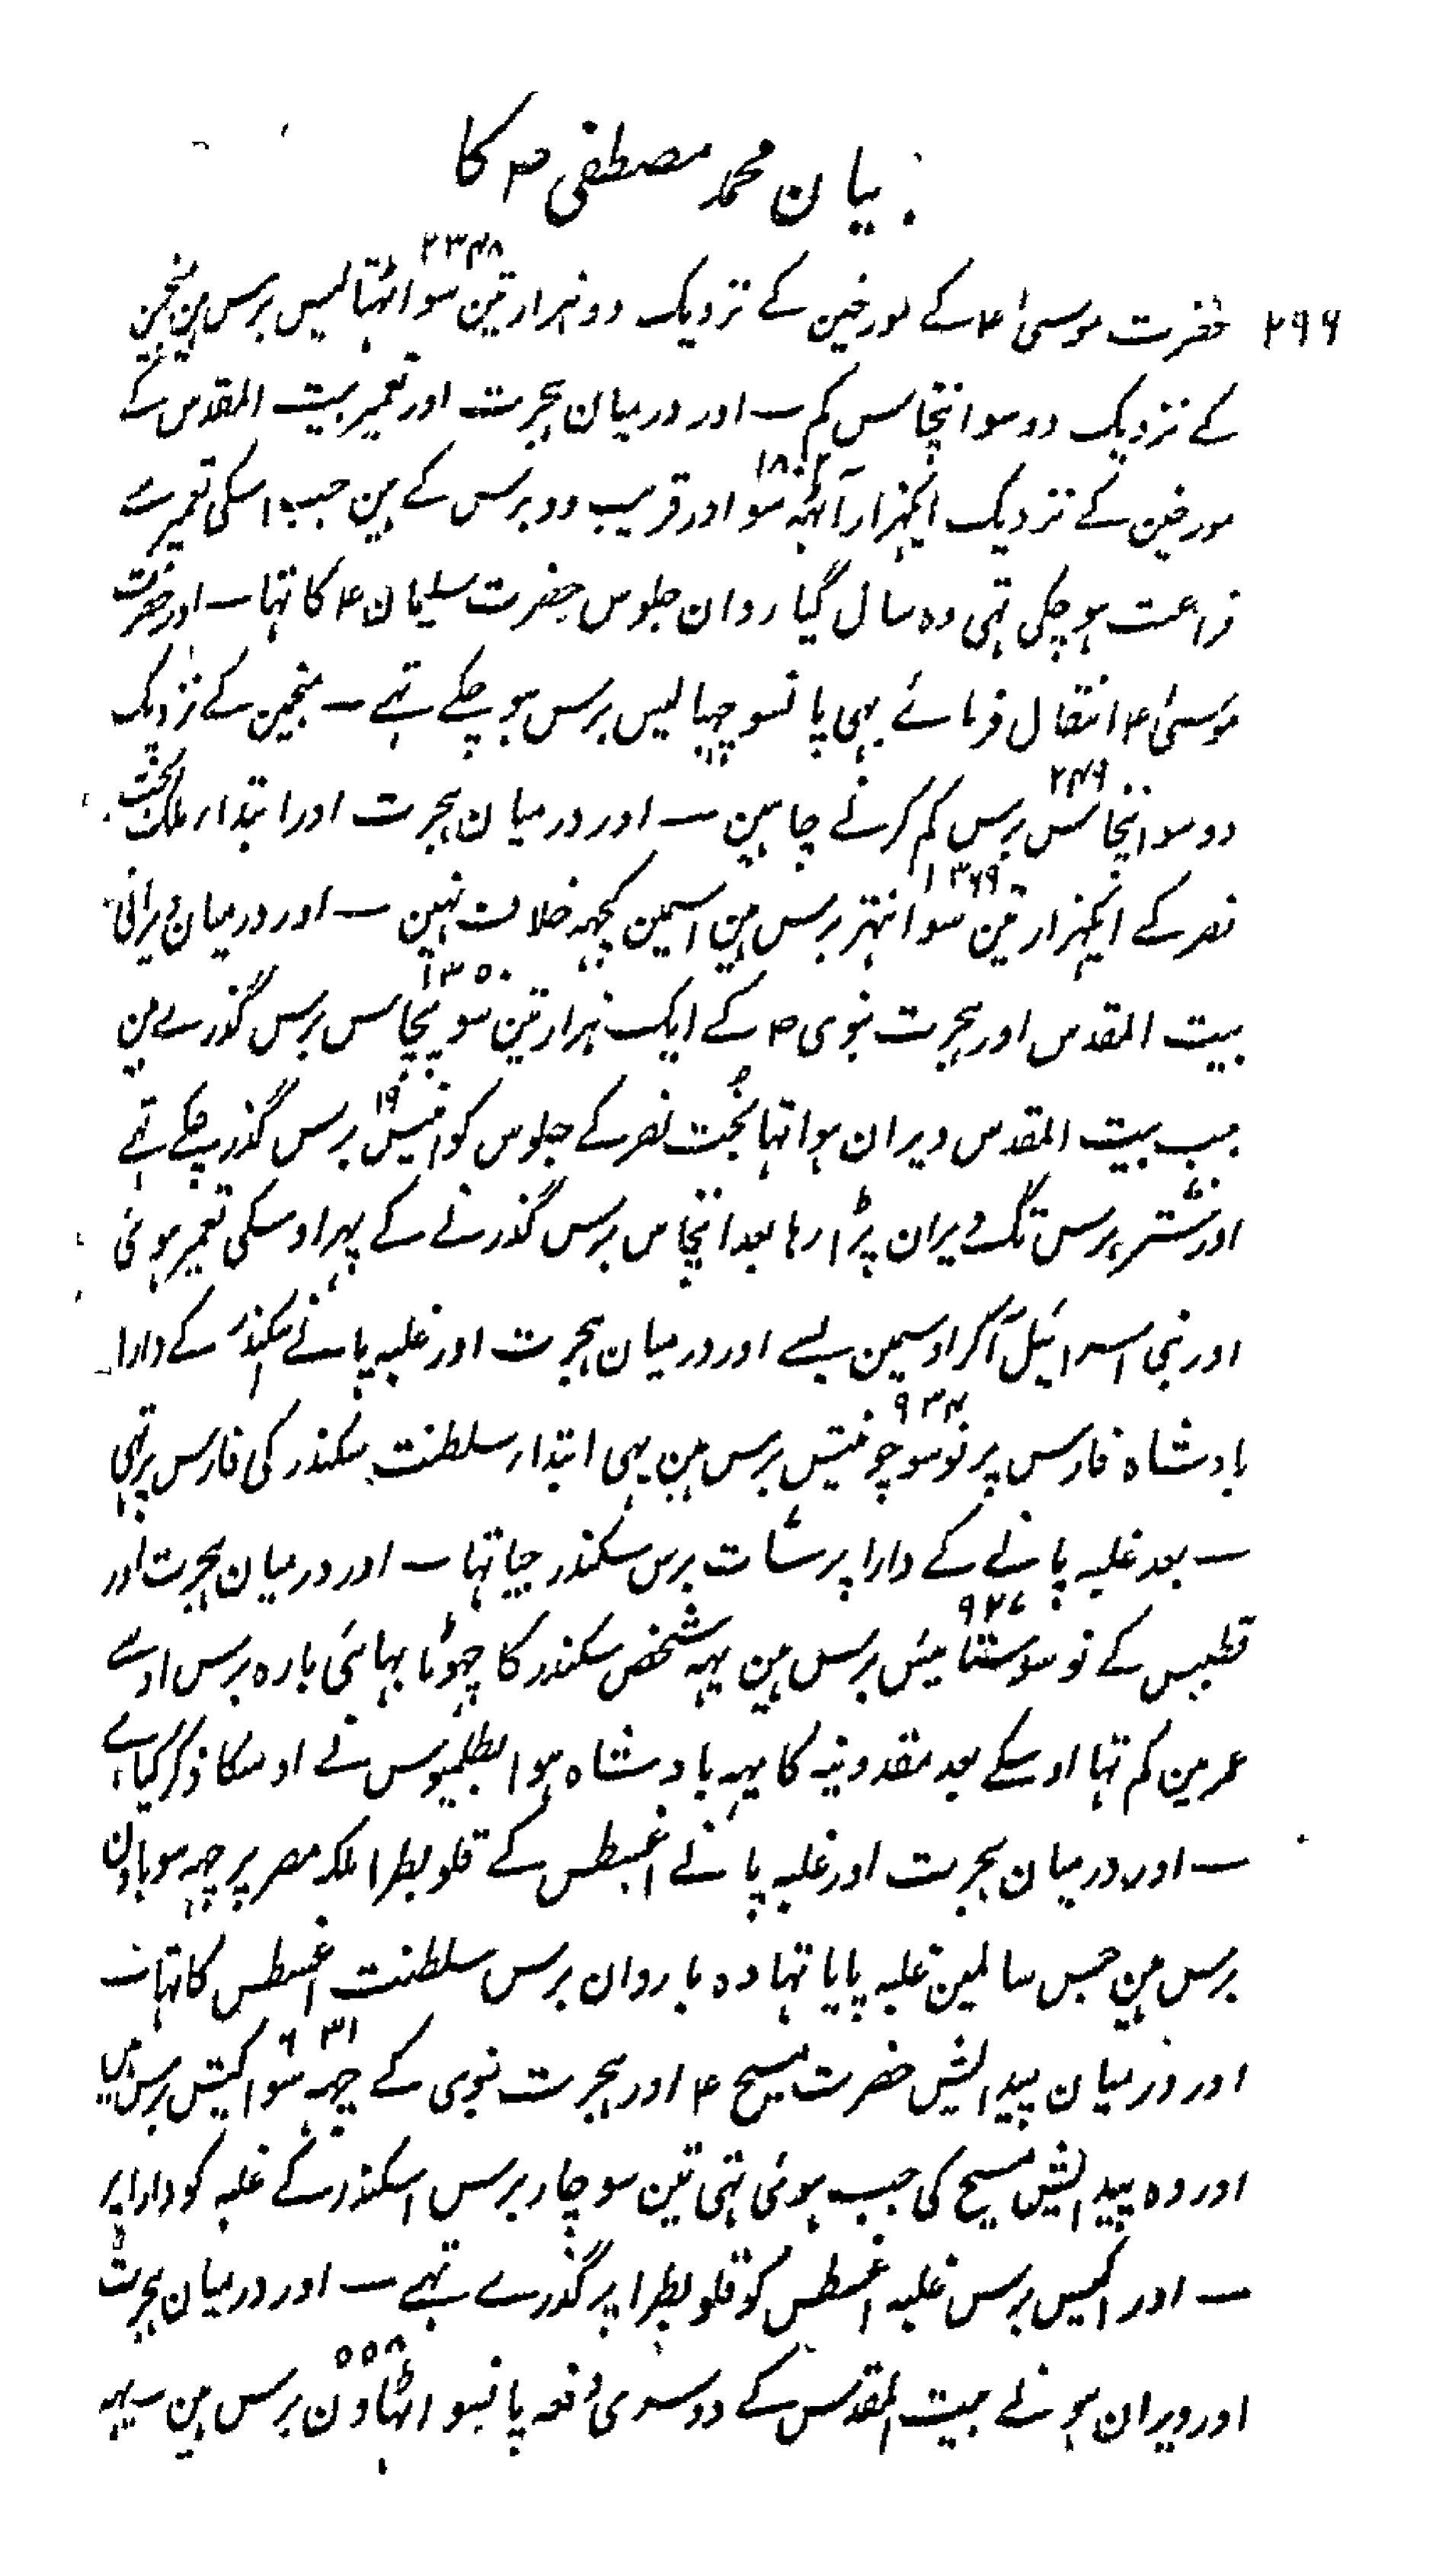 بیان محمد مصطفی ؐ کا
۲۹۶ حضرت موسیٰ ؑ کے مورخین کے نزدیک دو ہزار تین سو اٹہتالیس ۲۳۴۸ برس ہین منجمین
کے نزدیک دو سو انچاس کم ــ اور درمیان ہجرت اور تعمیر بیت المقدس کے
مورخین کے نزدیک ایکہزار آٹھہ سو ۱۸۰۲ اور قریب دو برس کے ہین جب اسکی تعمیر سے
فراعت ہو چکی تہی وہ سال گیاروان جلوس حضرت سلیمان ؑ کا تہا ــ اور حضرت
موسیٰ ؑ انتقال فرمائے بہی پانسو چہیالیس برس ہو چکے تہے ــ منجمین کے نزدیک
دو سو انچاس ۲۴۹ برس کم کرنے چاہین ــ اور درمیان ہجرت اور ابتدار ملک بخت
نصر کے ایکہزار تین سو انہتر ۱۳۶۹ برس ہین اسمین کچہہ خلاف نہین ــ اور درمیان ویرانی
بیت المقدس اور ہجرت نبوی ؐ کے ایک ہزار تین سو پچاس ۱۳۵۰ برس گذرے ہین
جب بیت المقدس ویران ہوا تہا بخت نصر کے جلوس کو انیس ۱۹ برس گذر چکے تہے
اور ستر برس تک ویران پڑا رہا بعد انچاس برس گذرنے کے پہر اوسکی تعمیر ہوئی
اور بنی اسرائیل آکر اوسمین بسے اور درمیان ہجرت اور غلبہ پانے اسکندر کے دارا
بادشاہ فارس پر نو سو چونتیس ۹۳۴ برس ہین یہی ابتدار سلطنت سکندر کی فارس پر تہی
ــ بعد غلبہ پانے کے دارا پر سات برس سکندر جیا تہا ــ اور درمیان ہجرت اور
قطبیس کے نو سو ستتائیس ۹۲۷ برس ہین یہہ شخص سکندر کا چہوٹا بہائی بارہ برس اوسے
عمر مین کم تہا اوسکے بعد مقدونیہ کا یہہ بادشاہ ہوا بطلمیوس نے اوسکا ذکر کیا ہے
ــ اور درمیان ہجرت اور غلبہ پانے اغسطس کے قلوبطرا ملکہ مصر پر چہہ سو باون
برس ہین جس سالمین غلبہ پایا تہا وہ باروان برس سلطنت اغسطس کا تہا ــ
اور درمیان پیدائش حضرت مسیح ؑ اور ہجرت نبوی کے چہہ سو اکتیس ۶۳۱ برس ہیں
اور وہ پیدائش مسیح کی جب ہوئی تہی تین سو چار برس اسکندر کے غلبہ کو دارا پر
ــ اور اکیس برس غلبہ اغسطس کو قلوبطرا پر گذرے تہے ــ اور درمیان ہجرت
اور ویران ہونے بیت المقدس کے دوسری دفعہ پانسو اٹہاون ۵۵۸ برس ہین یہہ